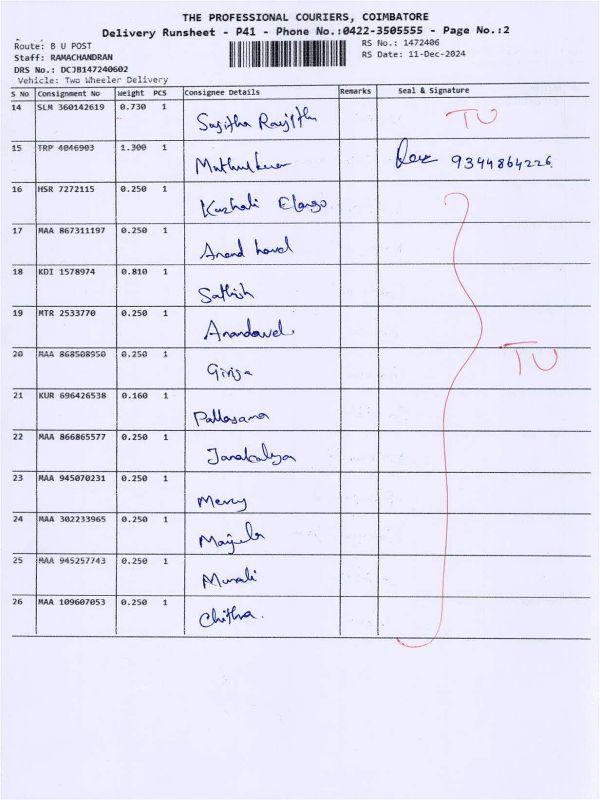 THE PROFESSIONAL COURIERS, COIMBATORE
Delivery Runsheet - P41 - Phone No.:0422-3505555 - Page No.:2
Route: B U POST
RS No.: 1472406
Staff: RAMACHANDRAN
RS Date: 11-Dec-2024
DRS No.: DCJB147240602
Vehicle: Two Wheeler Delivery
S No Consignment No Weight PCS Consignee Details Remarks Seal & Signature
14 SLM 360142619 0.730 1 TU
15 TRP 4046903 1.300 1 9344864226
16 HSR 7272115 0.250 1 Elango
17 MAA 867311197 0.250 1 Anand
18 KDI 1578974 0.810 1 Sathish
19 MTR 2533770 0.250 1 Anandavel
20 MAA 868508950 0.250 1 Girija TU
21 KUR 696426538 0.160 1
22 MAA 866865577 0.250 1
23 MAA 945070231 0.250 1 Mercy
24 MAA 302233965 0.250 1
25 MAA 945257743 0.250 1 Murali
26 MAA 109607053 0.250 1 Chithra.